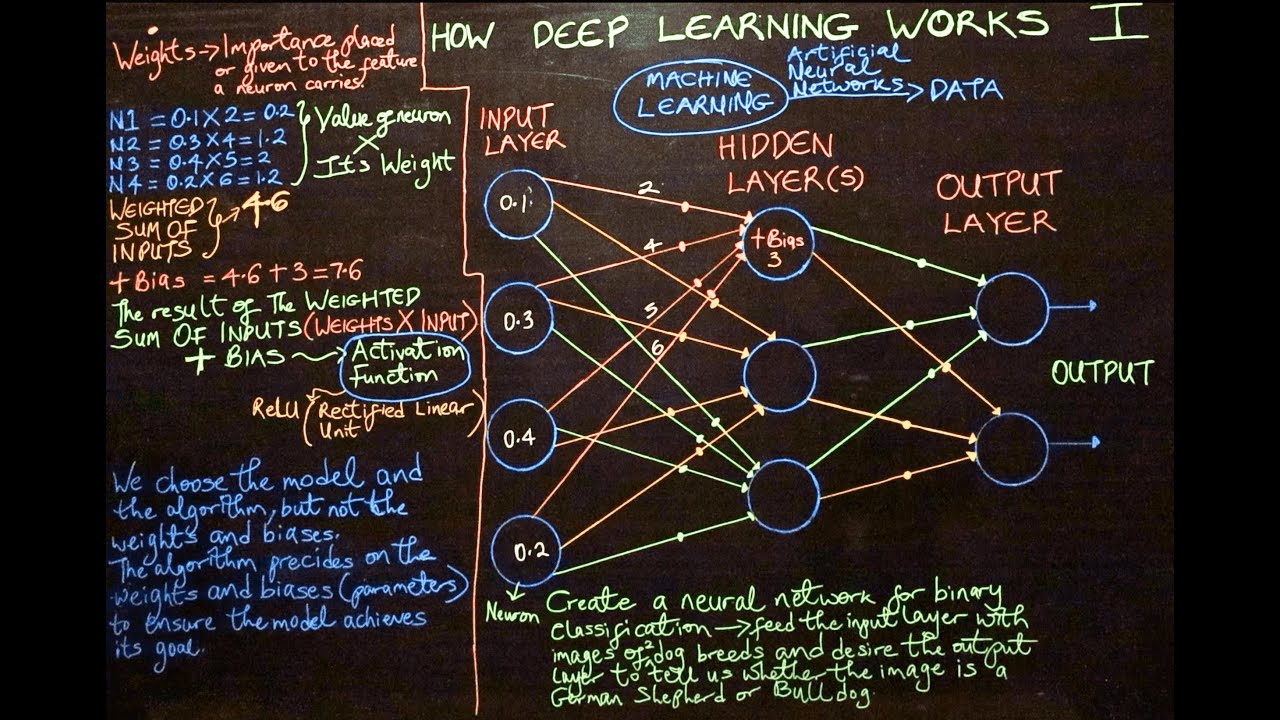 HOW DEEP LEARNING WORKS I
Weights → Importance placed
or given to the feature
a neuron carries.
N1 = 0.1 X 2 = 0.2
N2 = 0.3 X 4 = 1.2
N3 = 0.4 X 5 = 2
N4 = 0.2 X 6 = 1.2
Value of neuron
X
Its Weight
WEIGHTED
SUM OF
INPUTS
→ 4.6
+ Bias = 4.6 + 3 = 7.6
The result of the WEIGHTED
SUM OF INPUTS (WEIGHTS X INPUT)
+ BIAS → Activation
Function
ReLU (Rectified Linear
Unit)
We choose the model and
the algorithm, but not the
weights and biases.
The algorithm precides on the
weights and biases (parameters)
to ensure the model achieves
its goal.
MACHINE
LEARNING
Artificial
Neural
Networks
→ DATA
INPUT
LAYER
HIDDEN
LAYER(S)
OUTPUT
LAYER
0.1
0.3
0.4
0.2
2
4
5
6
+ Bias
3
OUTPUT
Neuron
Create a neural network for binary
classification → feed the input layer with
images of 2 dog breeds and desire the output
layer to tell us whether the image is a
German Shepherd or Bulldog.